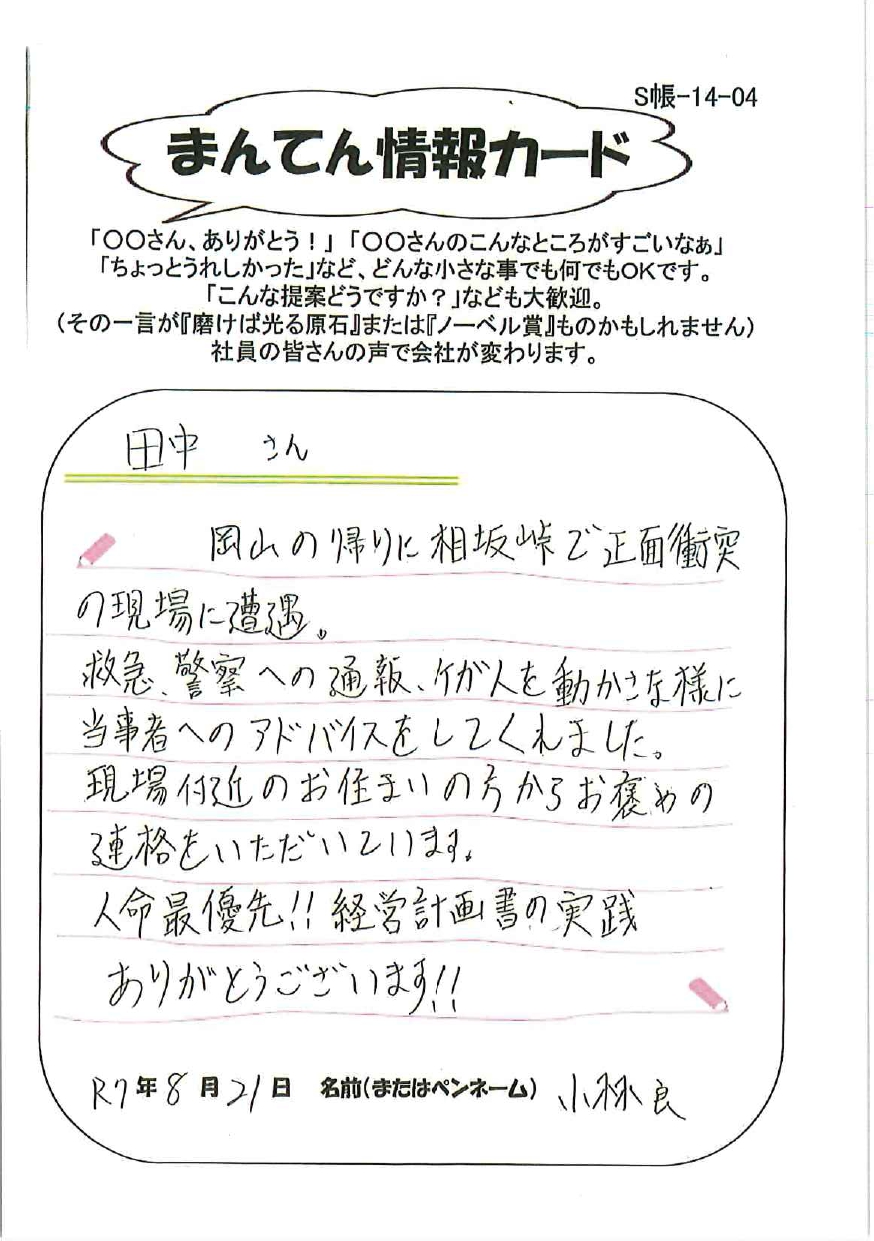 S帳-14-04
まんてん情報カード
「〇〇さん、ありがとう！」「〇〇さんのこんなところがすごいなぁ」
「ちょっとうれしかった」など、どんな小さな事でも何でもOKです。
「こんな提案どうですか？」なども大歓迎。
(その一言が『磨けば光る原石』または『ノーベル賞』ものかもしれません)
社員の皆さんの声で会社が変わります。
田中 さん
岡山の帰りに相坂峠で正面衝突
の現場に遭遇。
救急、警察への通報、ケガ人を動かさな様に
当事者へのアドバイスをしてくれました。
現場付近のお住まいの方からお褒めの
連格をいただいています。
人命最優先!!経営計画書の実践
ありがとうございます!!
R7年8月21日 名前(またはペンネーム) 小林良